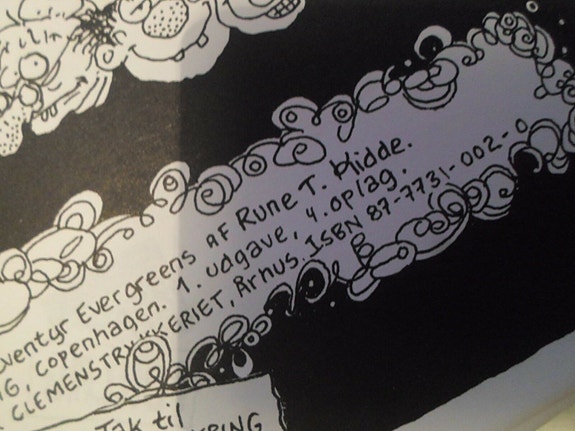 ventyr Evergreens af Rune T. Kidde.
G, Copenhagen. 1. udgave, 4. oplag.
CLEMENSTRYKKERIET, Århus. ISBN 87-7731-002-0
Tak til
RING